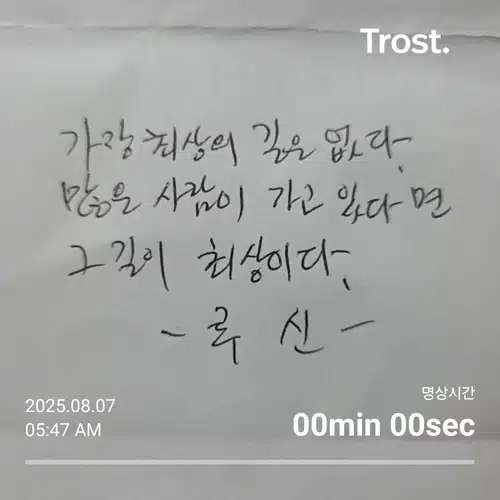 Trost.
가장 최상의 길은 없다.
많은 사람이 가고 있다면
그 길이 최상이다.
- 루 신 -
2025.08.07
05:47 AM
명상시간
00min 00sec